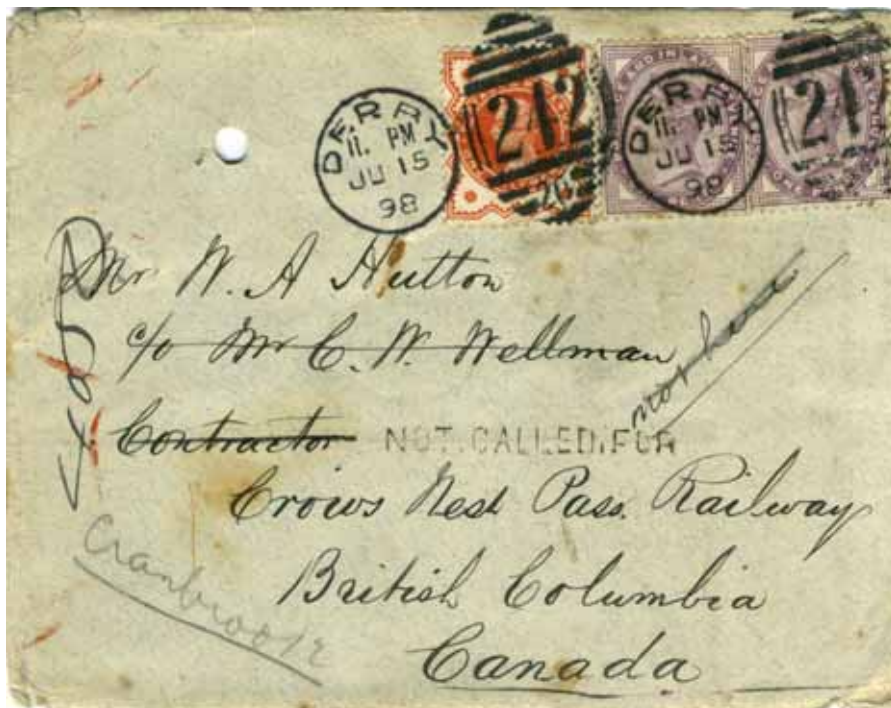 DERBY
11. PM
JU 15
98
242
DERBY
11. PM
JU 15
98
24
Mr W. A Hutton
c/o Mr C. W. Wellman
not here
Contractor NOT.CALLED.FOR
Crows Nest Pass. Railway
British Columbia
Canada
Cranbrook